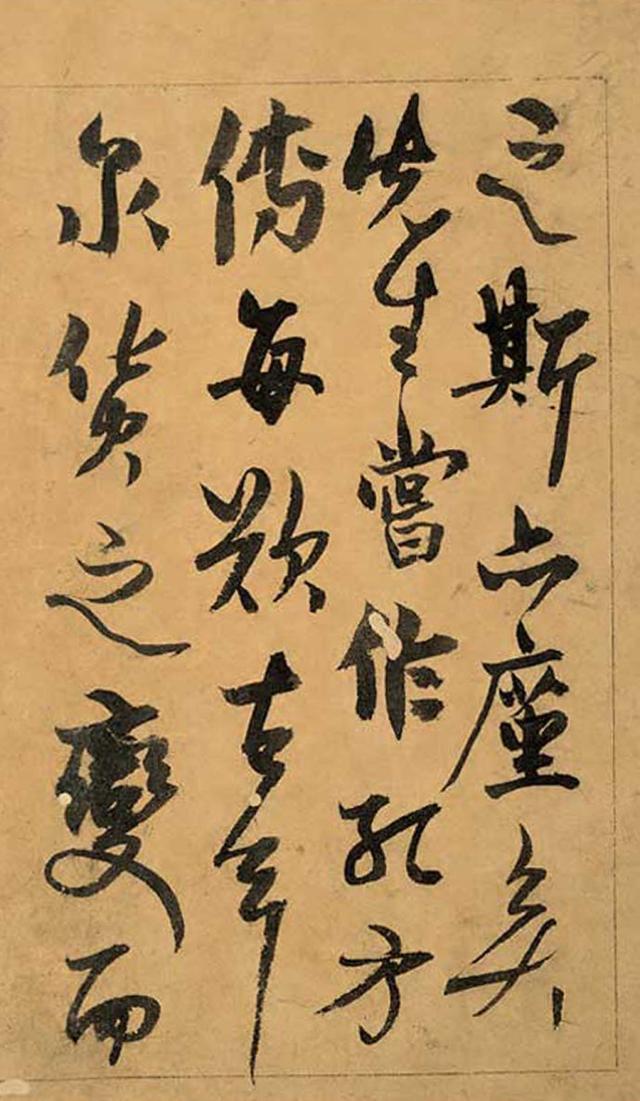 之斯亦矣
先生嘗作孔方
傳每歎古今
泉貨之變而